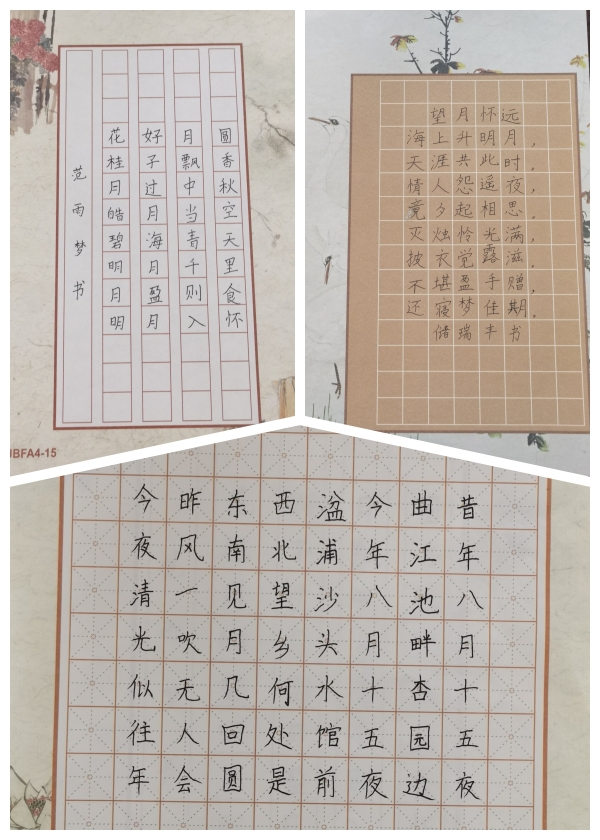 花好月圆
桂子飘香
月过中秋
皓月当空
碧海青天
明月千里
月盈则食
明月入怀
范雨梦书
望月怀远
海上升明月，
天涯共此时，
情人怨遥夜，
竟夕起相思。
灭烛怜光满，
披衣觉露滋。
不堪盈手赠，
还寝梦佳期.
储瑞丰书
昔年八月十五夜
曲江池畔杏园边
今年八月十五夜
湓浦沙头水馆前
西北望乡何处是
东南见月几回圆
昨风一吹无人会
今夜清光似往年